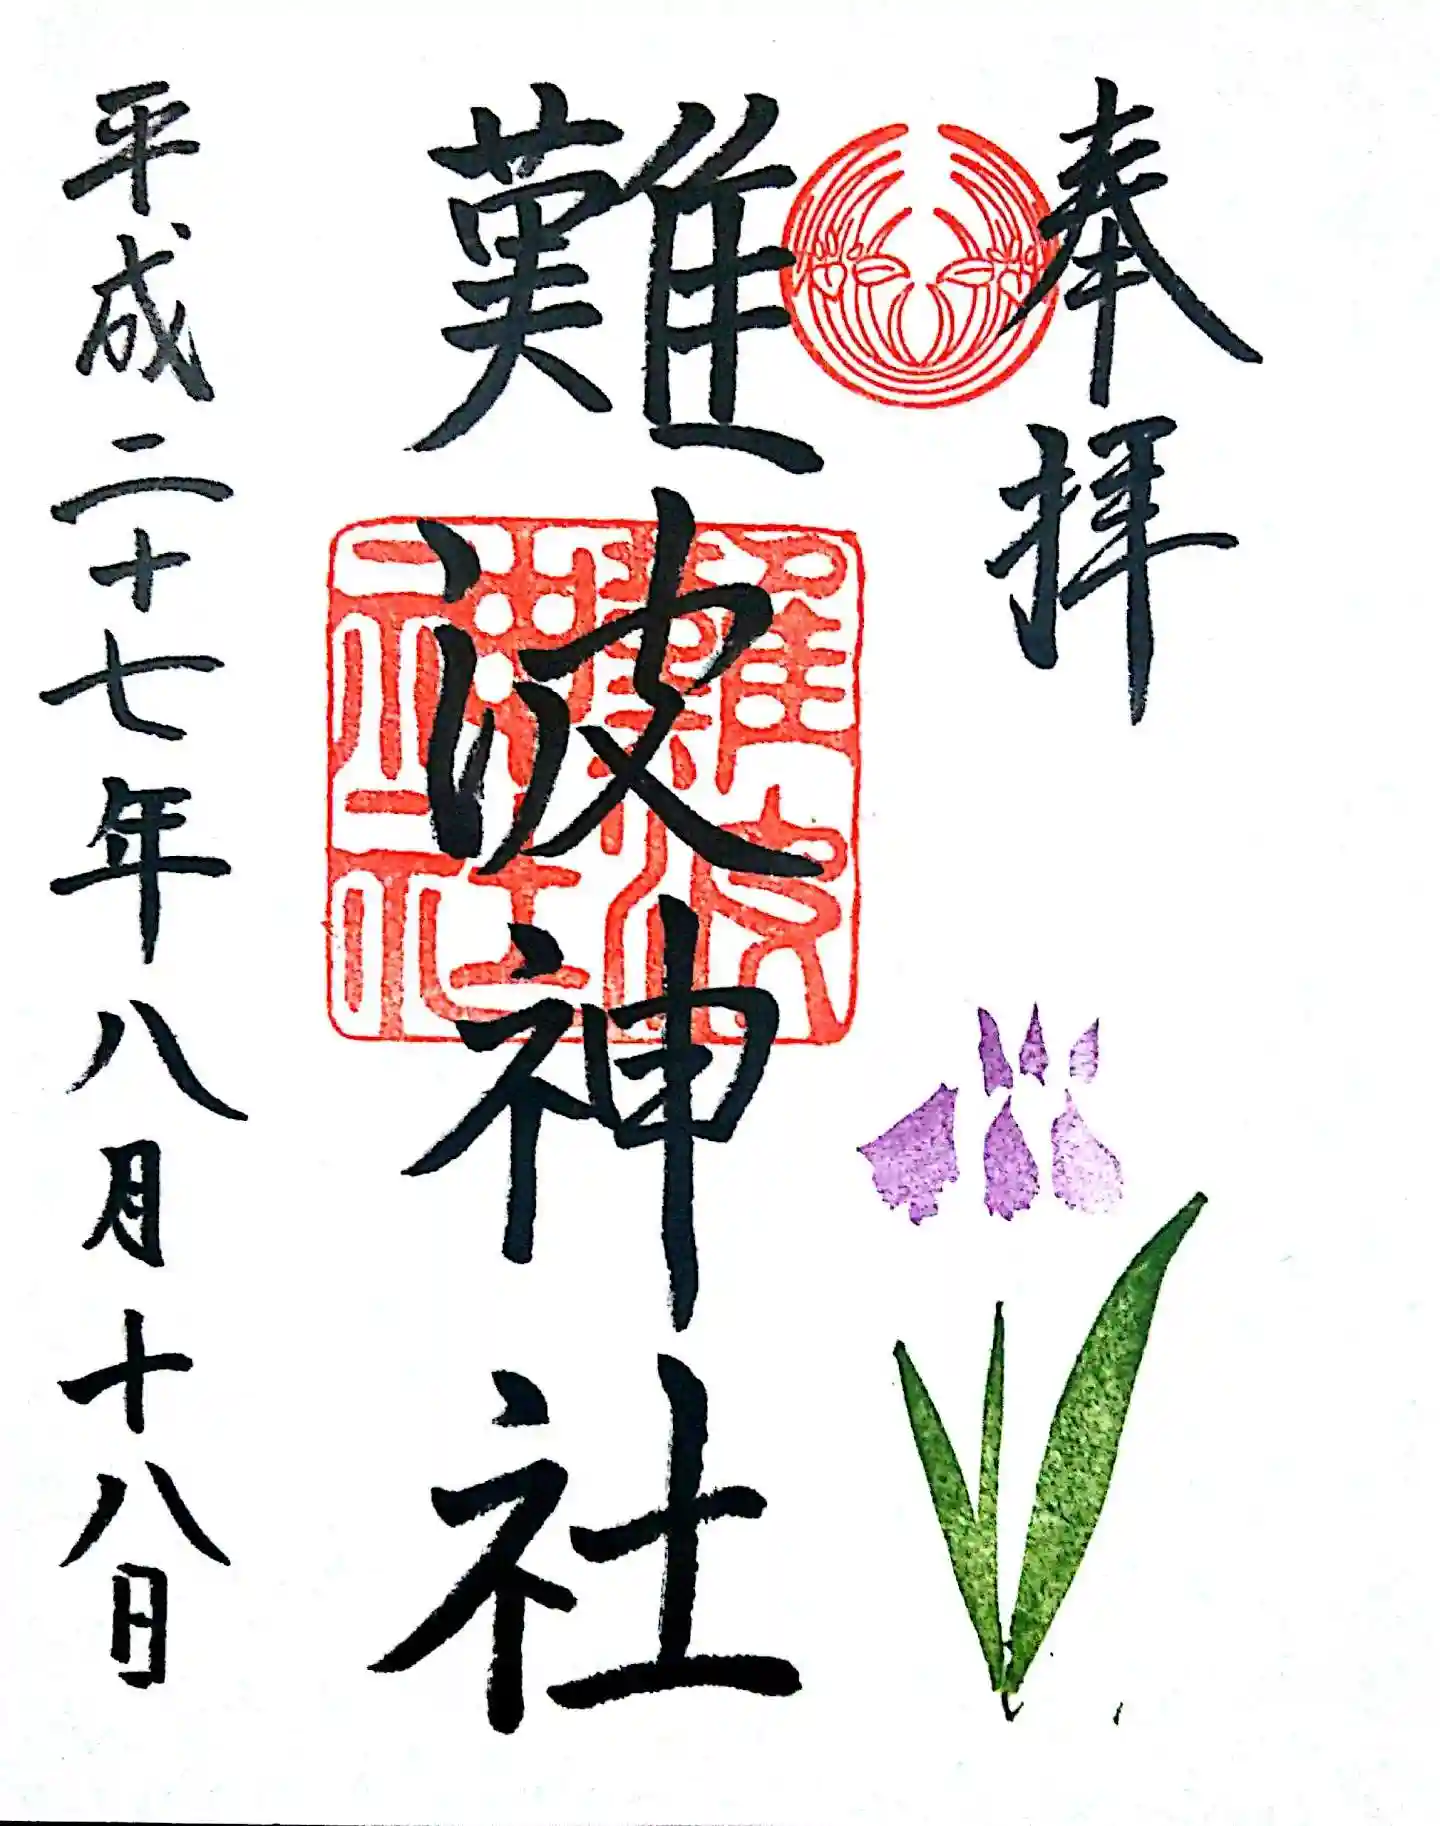 奉拝
難波神社
難波神社
平成二十七年八月十八日